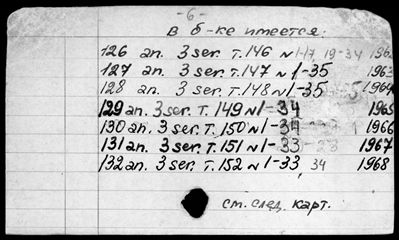 -6-
в б-ке имеется:
126 an. 3 ser. т. 146 N 1-17, 19-34
127 an. 3 ser. т. 147 N 1-35 1963
128 an. 3 ser. т. 148 N 1-35 1964
129 an. 3 ser. т. 149 N 1-34 1965
130 an. 3 ser. т. 150 N 1-34 1966
131 an. 3 ser. т. 151 N 1-33 1967
132 an. 3 ser. т. 152 N 1-33, 34 1968
см. след. карт.